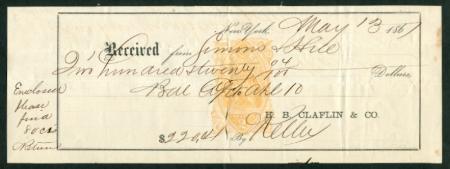 New York, May 13 1867
Received from Simons &
Two hundred & twenty 04/100 Dollars
Bal
H. B. CLAFLIN & CO.
$220.04 By Kelley
Enclosed
please
find
80cs
Return